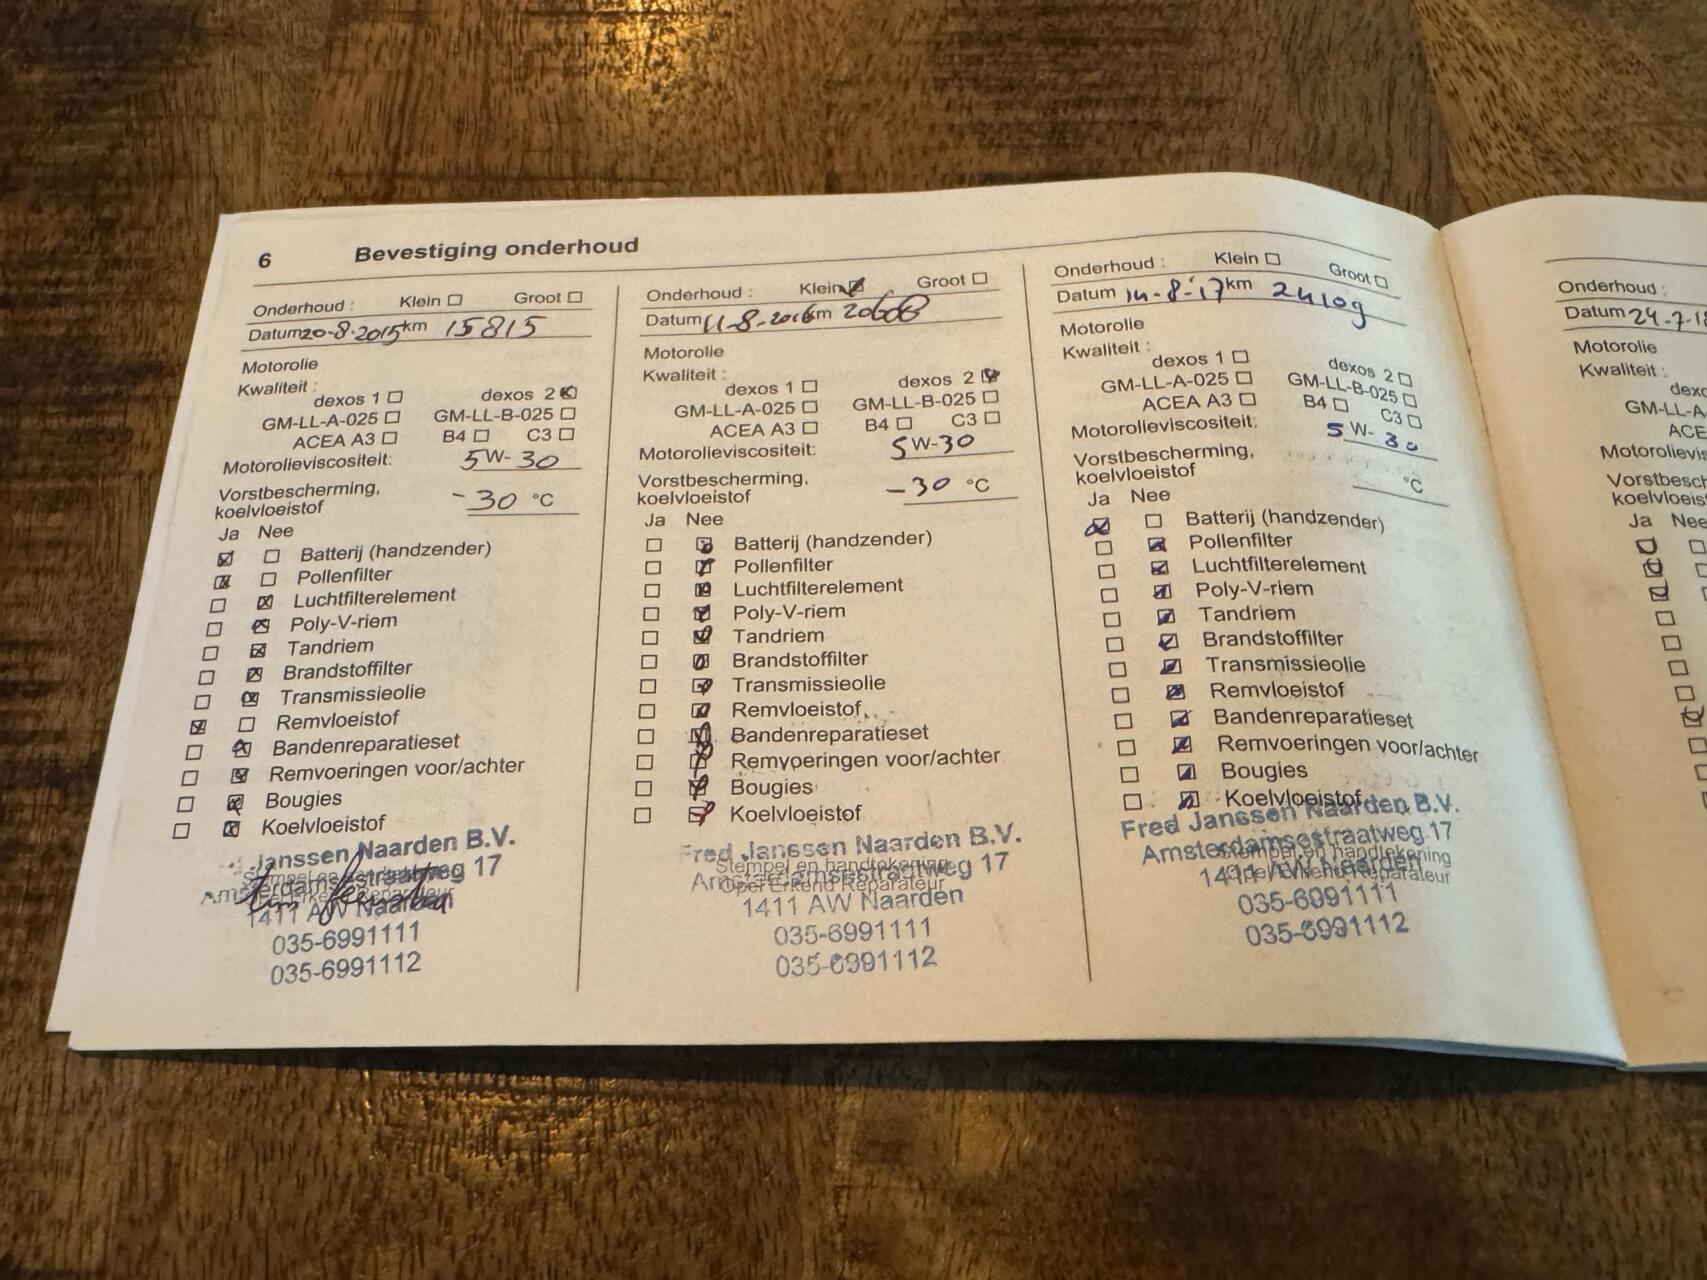 6 Bevestiging onderhoud
Onderhoud : Klein Groot
Datum 20-8-2015 km 15815
Motorolie
Kwaliteit :
dexos 1 dexos 2
GM-LL-A-025 GM-LL-B-025
ACEA A3 B4 C3
Motorolieviscositeit: 5W-30
Vorstbescherming,
koelvloeistof -30 °C
Ja Nee
Batterij (handzender)
Pollenfilter
Luchtfilterelement
Poly-V-riem
Tandriem
Brandstoffilter
Transmissieolie
Remvloeistof
Bandenreparatieset
Remvoeringen voor/achter
Bougies
Koelvloeistof
Janssen Naarden B.V.
Amsterdamsestraatweg 17
1411 AW Naarden
035-6991111
035-6991112
Onderhoud : Klein Groot
Datum 11-8-2016 km 20608
Motorolie
Kwaliteit :
dexos 1 dexos 2
GM-LL-A-025 GM-LL-B-025
ACEA A3 B4 C3
Motorolieviscositeit: 5W-30
Vorstbescherming,
koelvloeistof -30 °C
Ja Nee
Batterij (handzender)
Pollenfilter
Luchtfilterelement
Poly-V-riem
Tandriem
Brandstoffilter
Transmissieolie
Remvloeistof
Bandenreparatieset
Remvoeringen voor/achter
Bougies
Koelvloeistof
Fred Janssen Naarden B.V.
Stempel en handtekening
Amsterdamsestraatweg 17
Opel Erkend Reparateur
1411 AW Naarden
035-6991111
035-6991112
Onderhoud : Klein Groot
Datum 14-8-17 km 24109
Motorolie
Kwaliteit :
dexos 1 dexos 2
GM-LL-A-025 GM-LL-B-025
ACEA A3 B4 C3
Motorolieviscositeit: 5W-30
Vorstbescherming,
koelvloeistof °C
Ja Nee
Batterij (handzender)
Pollenfilter
Luchtfilterelement
Poly-V-riem
Tandriem
Brandstoffilter
Transmissieolie
Remvloeistof
Bandenreparatieset
Remvoeringen voor/achter
Bougies
Koelvloeistof
Fred Janssen Naarden B.V.
Amsterdamsestraatweg 17
Stempel en handtekening
1411 AW Naarden
Opel Erkend Reparateur
035-6991111
035-6991112
Onderhoud :
Datum 24-7-18
Motorolie
Kwaliteit :
dexo
GM-LL-A
ACE
Motorolievis
Vorstbesch
koelvloeis
Ja Nee